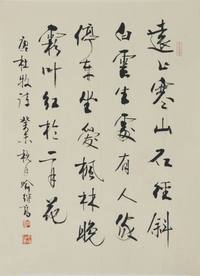 遠上寒山石徑斜
白雲生處有人家
停車坐愛楓林晚
霜葉紅於二月花
唐杜牧詩 癸未秋月